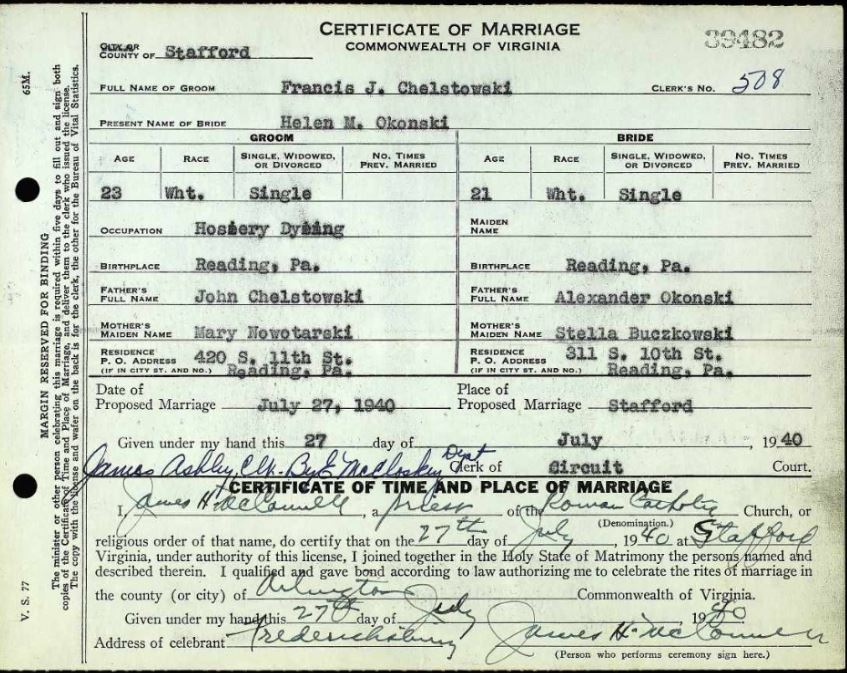 CERTIFICATE OF MARRIAGE
COMMONWEALTH OF VIRGINIA
39482
CITY OR
COUNTY OF Stafford
FULL NAME OF GROOM Francis J. Chelstowski CLERK'S NO. 508
PRESENT NAME OF BRIDE Helen M. Okonski
GROOM BRIDE
AGE RACE SINGLE, WIDOWED, OR DIVORCED NO. TIMES PREV. MARRIED AGE RACE SINGLE, WIDOWED, OR DIVORCED NO. TIMES PREV. MARRIED
23 Wht. Single 21 Wht. Single
OCCUPATION Hosiery Dyeing MAIDEN NAME
BIRTHPLACE Reading, Pa. BIRTHPLACE Reading, Pa.
FATHER'S FULL NAME John Chelstowski FATHER'S FULL NAME Alexander Okonski
MOTHER'S MAIDEN NAME Mary Nowotarski MOTHER'S MAIDEN NAME Stella Buczkowski
RESIDENCE 420 S. 11th St. RESIDENCE 311 S. 10th St.
P. O. ADDRESS P. O. ADDRESS
(IF IN CITY ST. AND NO.) Reading, Pa. (IF IN CITY ST. AND NO.) Reading, Pa.
Date of Place of
Proposed Marriage July 27, 1940 Proposed Marriage Stafford
Given under my hand this 27 day of July , 1940
James Ashby, Clk. By E McCloskey Dept Clerk of Circuit Court.
CERTIFICATE OF TIME AND PLACE OF MARRIAGE
I, James H. McConnell, a priest of the Roman Catholic Church, or
(Denomination.)
religious order of that name, do certify that on the 27th day of July , 1940 at Stafford
Virginia, under authority of this license, I joined together in the Holy State of Matrimony the persons named and
described therein. I qualified and gave bond according to law authorizing me to celebrate the rites of marriage in
the county (or city) of Arlington Commonwealth of Virginia.
Given under my hand this 27th day of July 1940
Address of celebrant Fredericksburg James H. McConnell
(Person who performs ceremony sign here.)
V. S. 77
65M.
MARGIN RESERVED FOR BINDING
The minister or other person celebrating this marriage is required within five days to fill out and sign both
copies of the Certificate of Time and Place of Marriage, and deliver them to the clerk who issued the license.
The copy with the license and wafer on the back is for the clerk, the other for the Bureau of Vital Statistics.